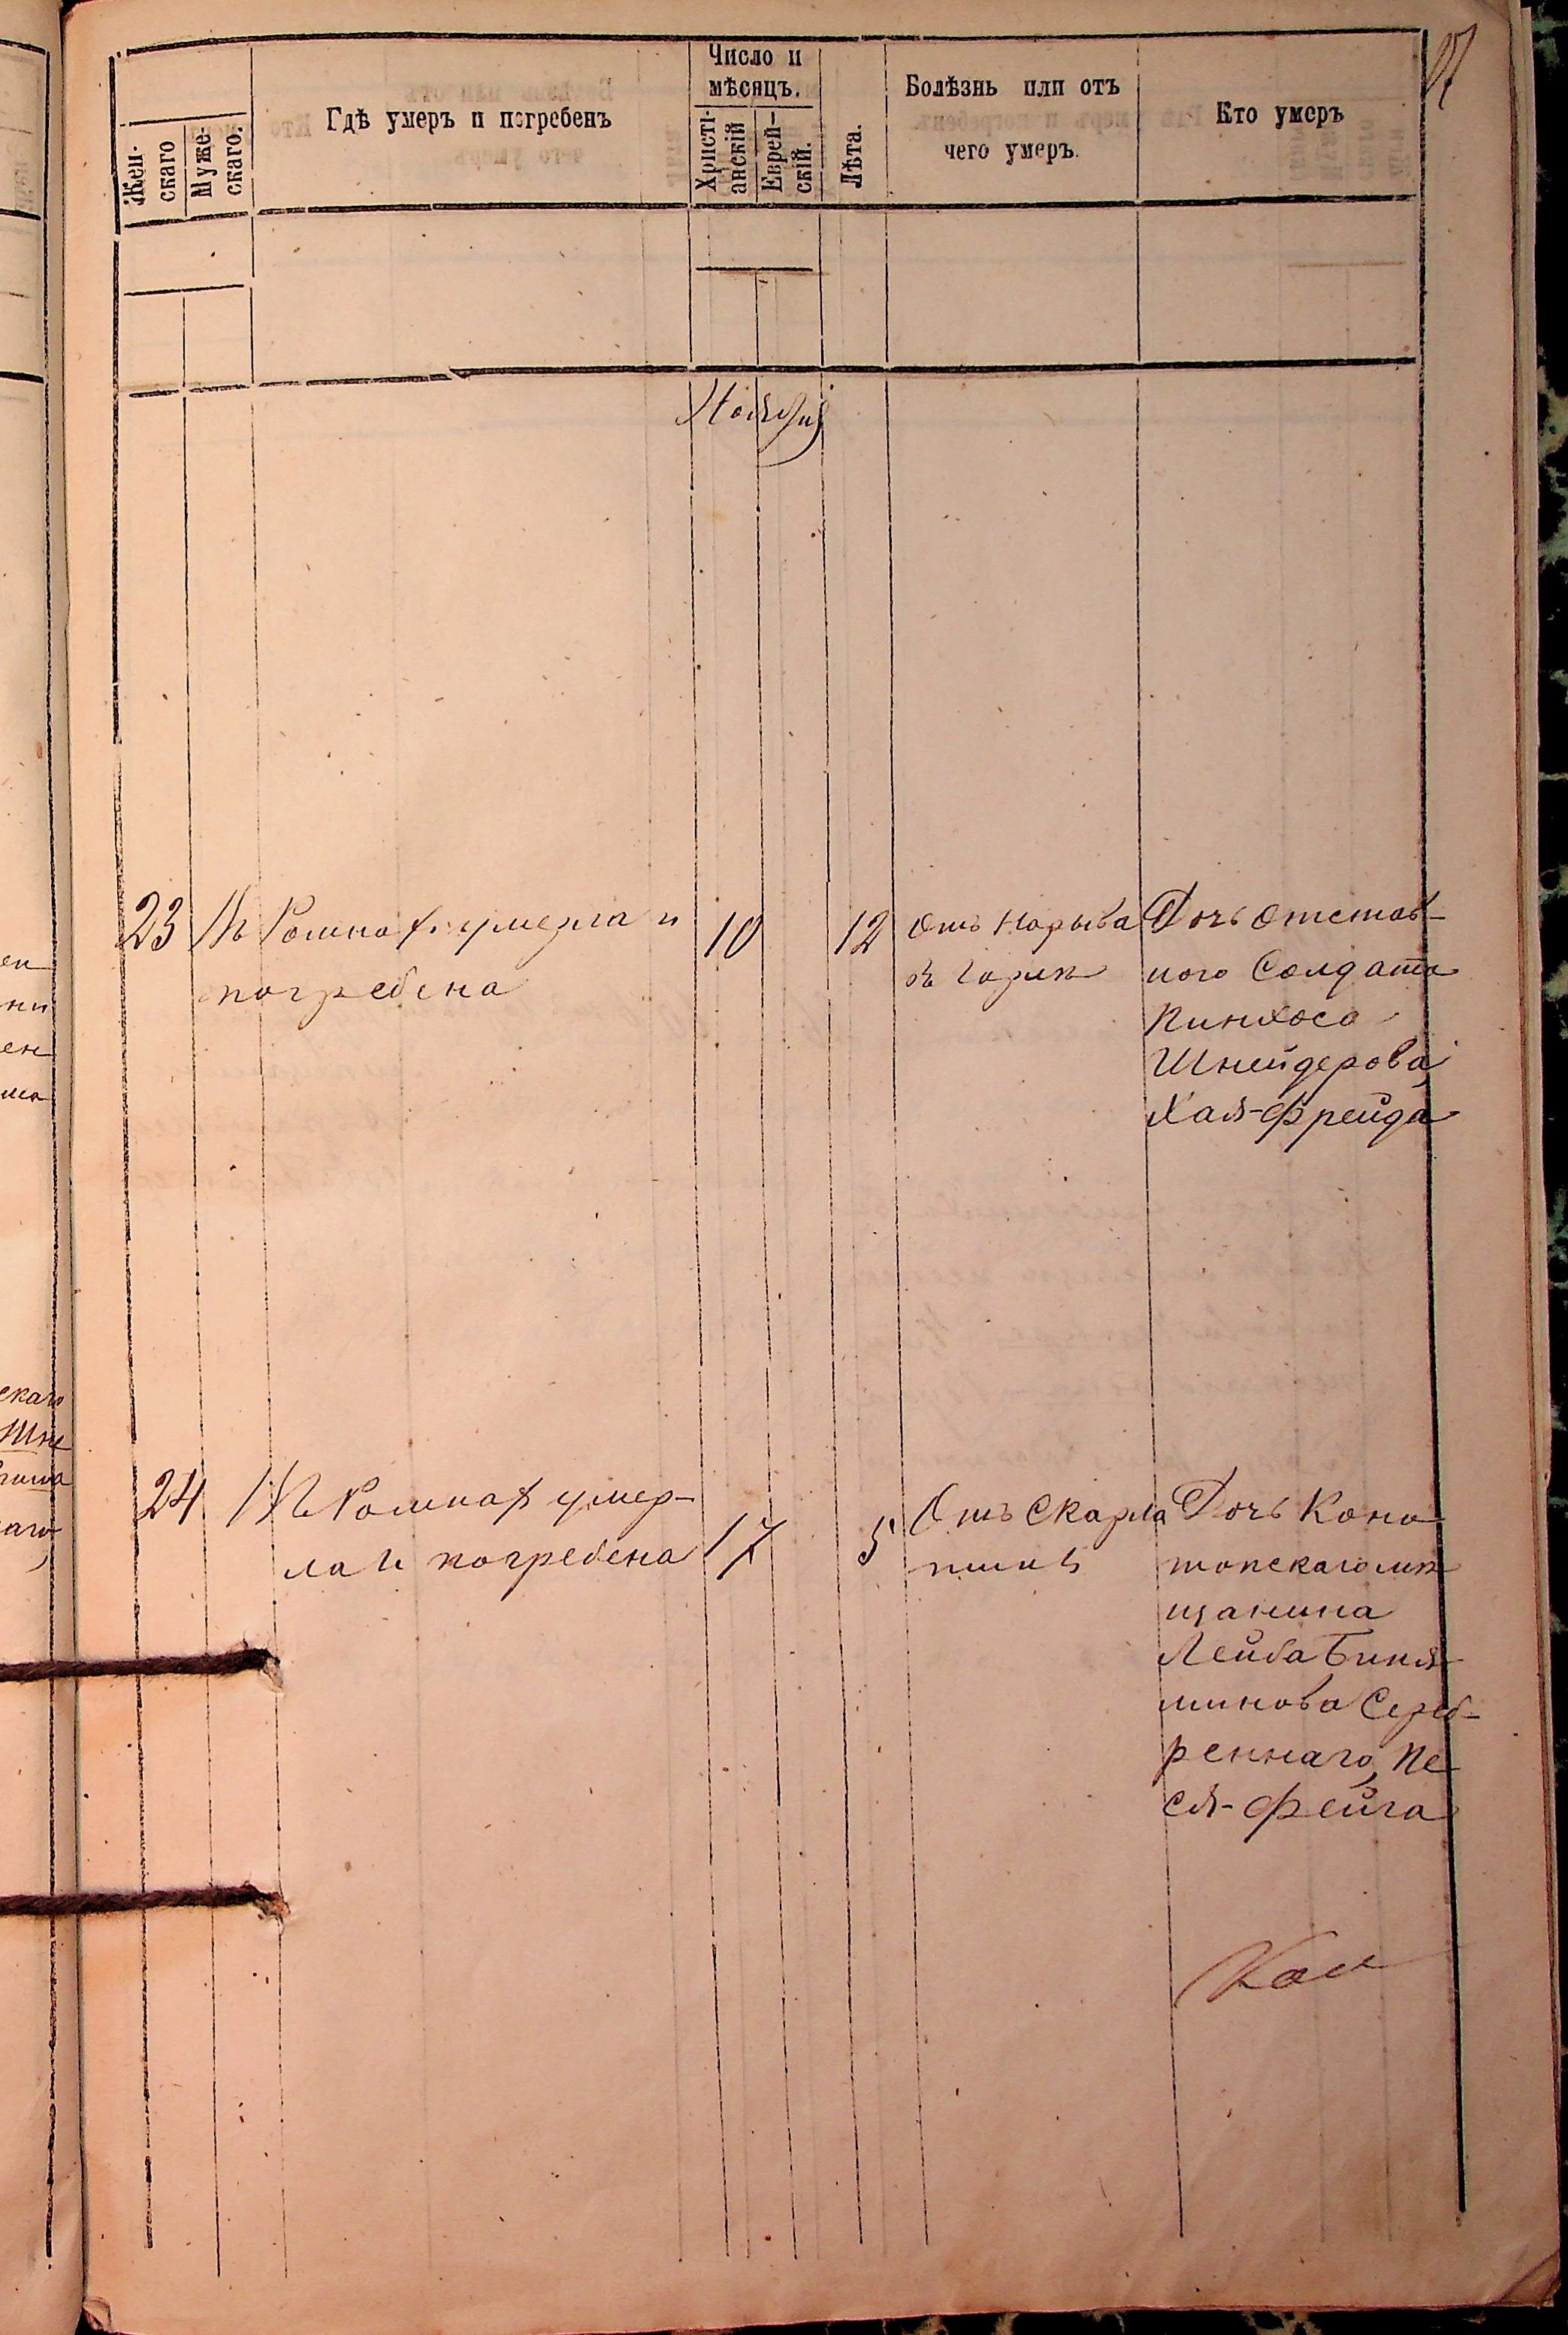 Жен-
скаго
Муже-
скаго.
Гдѣ умеръ и погребенъ
Число и
мѣсяцъ.
Христі-
анскій
Еврей-
скій.
Лѣта.
Болѣзнь или отъ
чего умеръ.
Кто умеръ
Ноября
23
Въ Ромнах умерла и
погребена
10
12
Отъ Нарыва
въ Горлѣ
Дочь отстав-
ного Солдата
Пинхоса
Шнейдерова,
Хая-Фрейда
24
Въ Ромнах умер-
ла и погребена
17
5
Отъ Скарла
тины
Дочь Коно
топскаго мѣ
щанина
Лейба Биня-
минова Сереб-
реннаго, Пе-
ся-Фейга